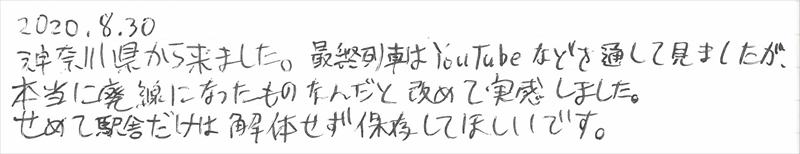 2020.8.30
神奈川県から来ました。最終列車はYouTubeなどを通して見ましたが、
本当に廃線になったものなんだと改めて実感しました。
せめて駅舎だけは解体せず保存してほしいです。